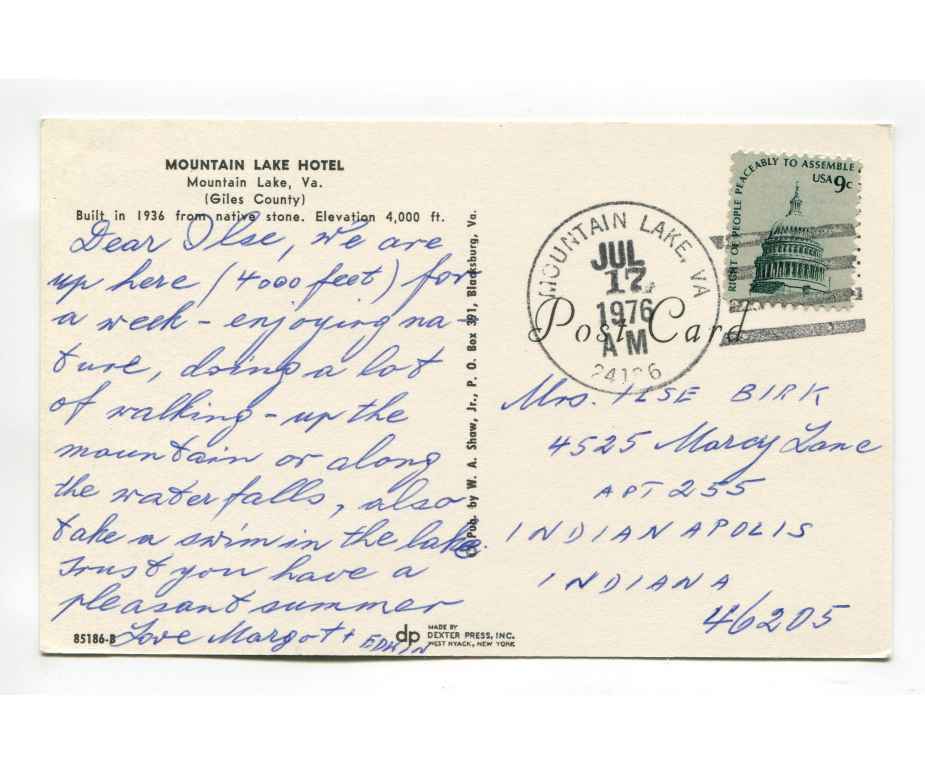 MOUNTAIN LAKE HOTEL
Mountain Lake, Va.
(Giles County)
Built in 1936 from native stone. Elevation 4,000 ft.
Dear Ilse, We are
up here (4000 feet) for
a week - enjoying na-
ture, doing a lot
of walking - up the
mountain or along
the waterfalls, also
take a swim in the lake.
Trust you have a
pleasant summer
Love Margot + EDWIN
85186-B
Pub. by W. A. Shaw, Jr., P. O. Box 391, Blacksburg, Va.
dp
MADE BY
DEXTER PRESS, INC.
WEST NYACK, NEW YORK
Post Card
MOUNTAIN LAKE, VA
JUL
17
1976
AM
24136
RIGHT OF PEOPLE PEACEABLY TO ASSEMBLE
USA 9c
Mrs. ILSE BIRK
4525 Marcy Lane
APT 255
INDIANAPOLIS
INDIANA
46205